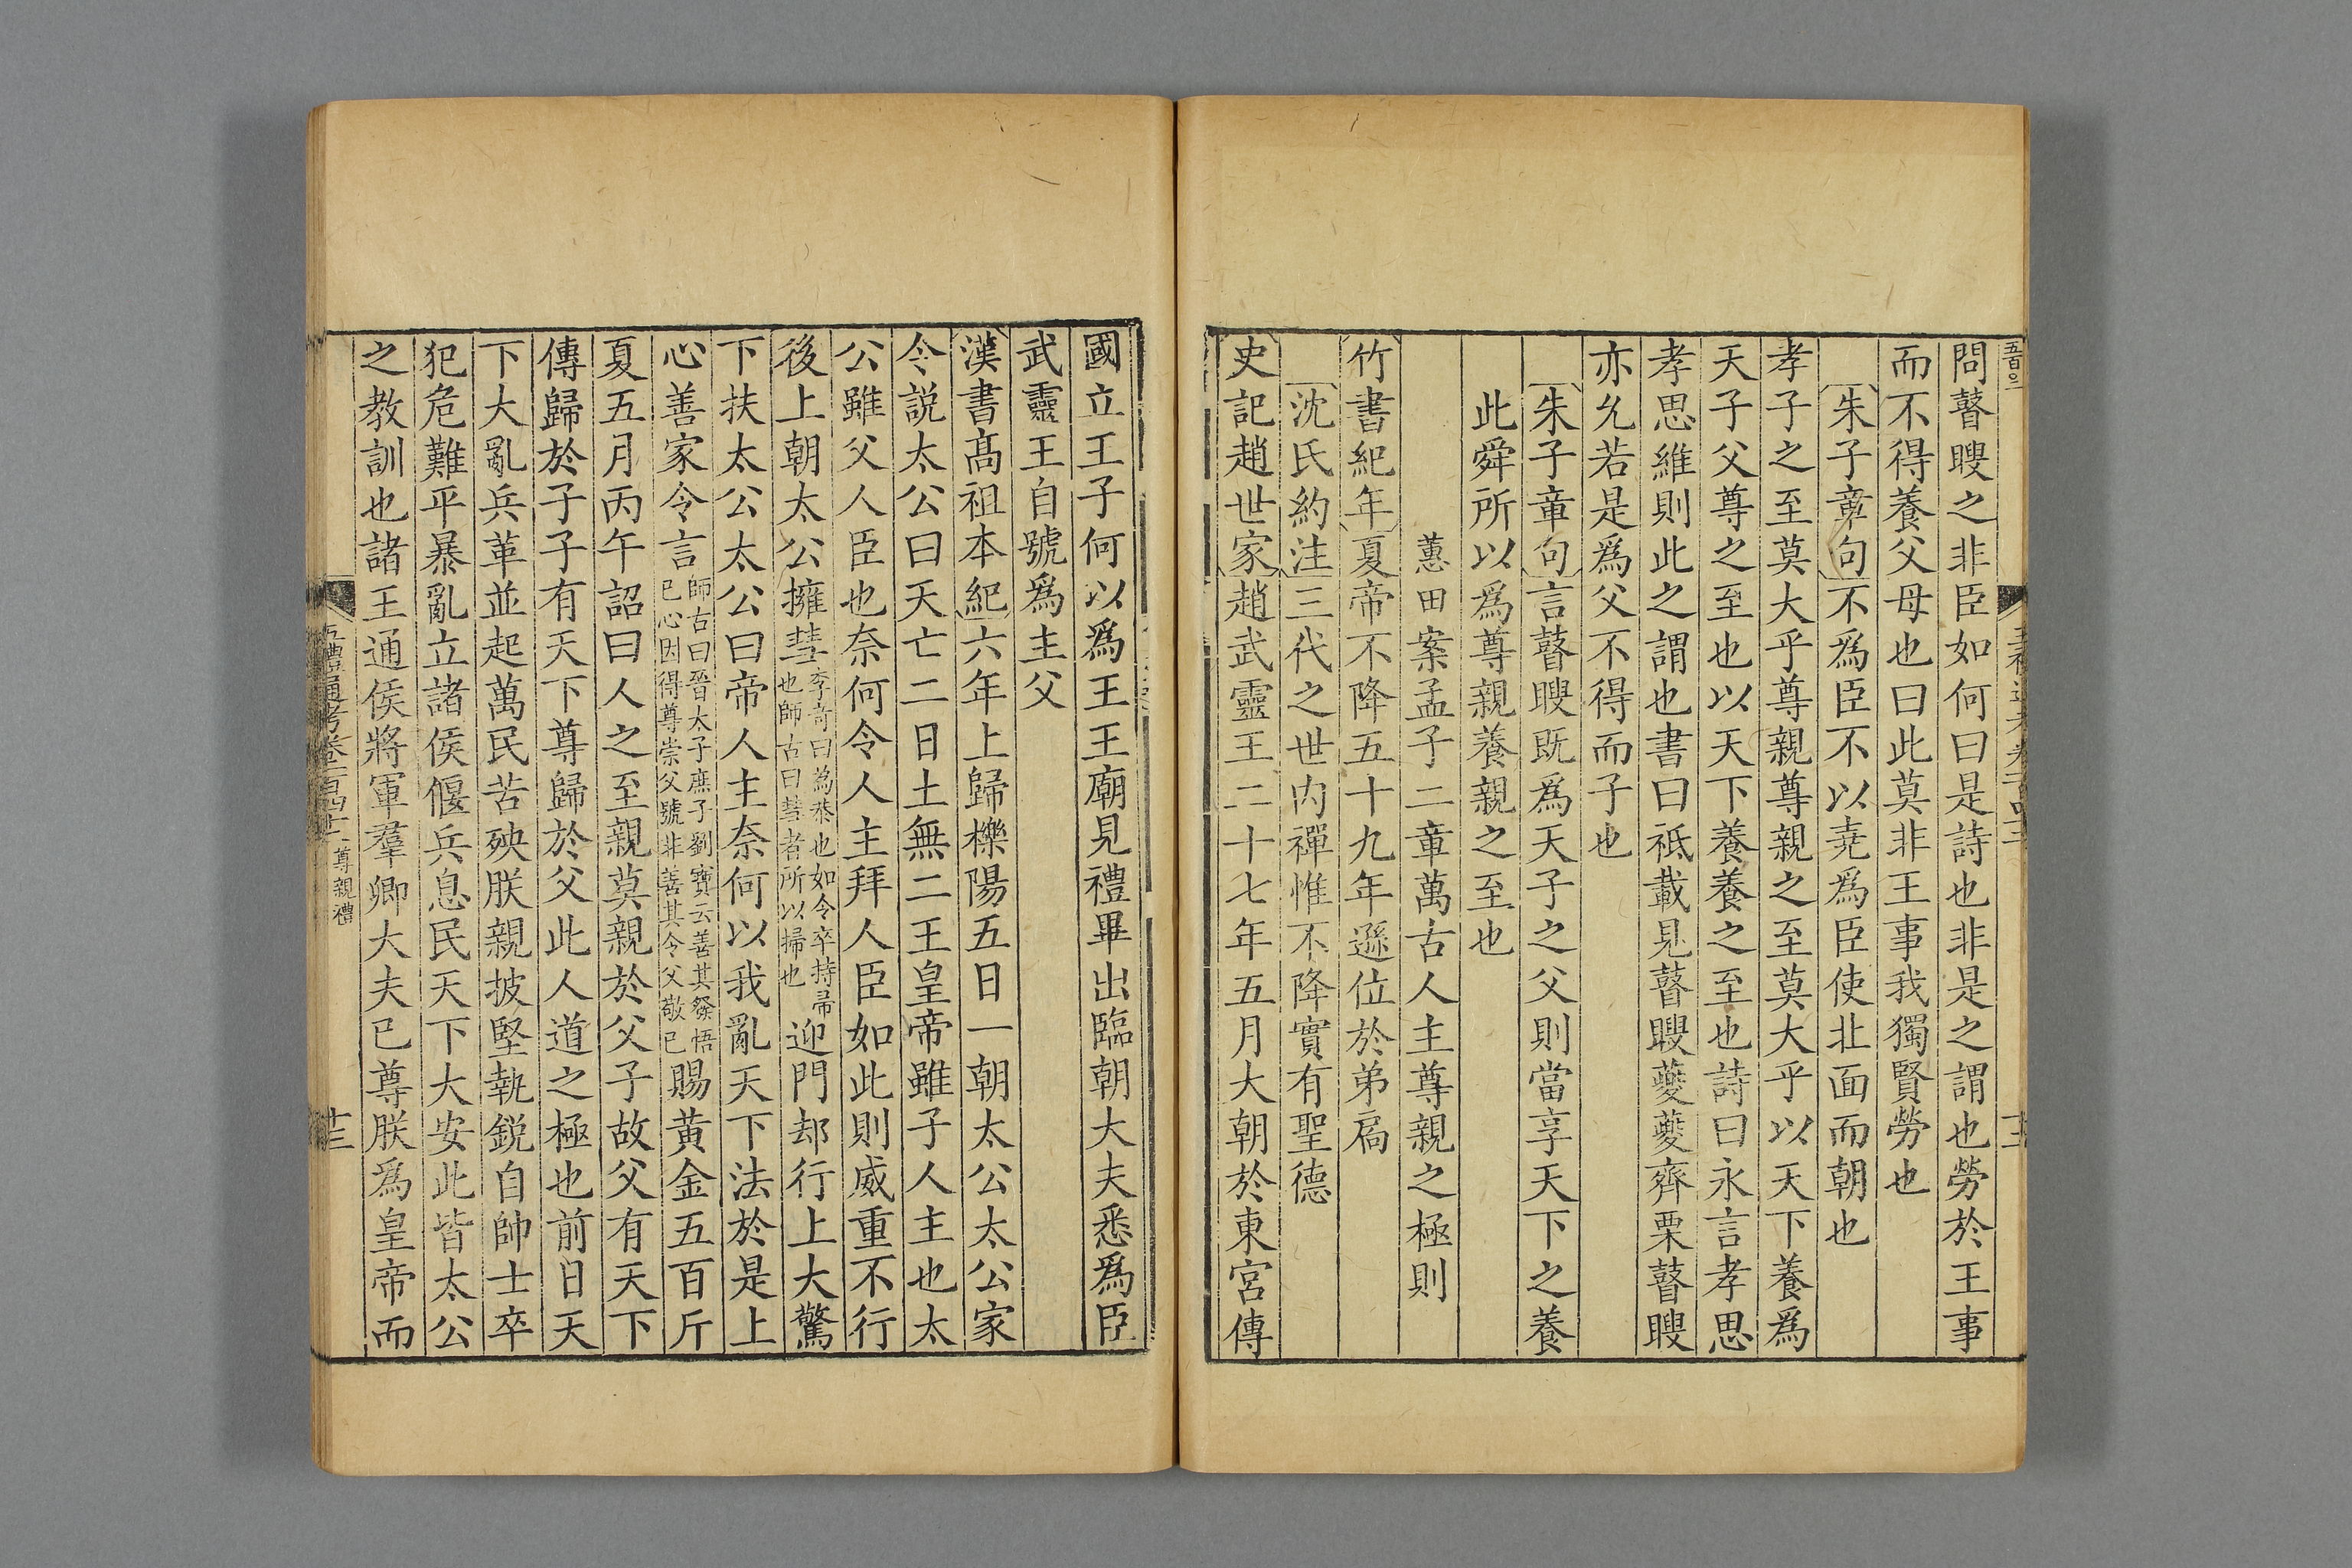 問瞽瞍之非臣如何曰是詩也非是之謂也勞於王事
而不得養父母也曰此莫非王事我獨賢勞也
朱子章句不爲臣不以堯爲臣使北面而朝也
孝子之至莫大乎尊親尊親之至莫大乎以天下養爲
天子父尊之至也以天下養養之至也詩曰永言孝思
孝思維則此之謂也書曰祗載見瞽瞍夔夔齊栗瞽瞍
亦允若是爲父不得而子也
朱子章句言瞽瞍既爲天子之父則當享天下之養
此舜所以爲尊親養親之至也
蕙田案孟子二章萬古人主尊親之極則
竹書紀年夏帝不降五十九年遜位於弟扃
沈氏約注三代之世內禪惟不降實有聖德
史記趙世家趙武靈王二十七年五月大朝於東宮傳
國立王子何以爲王王廟見禮畢出臨朝大夫悉爲臣
武靈王自號爲主父
漢書髙祖本紀六年上歸櫟陽五日一朝太公太公家
令説太公曰天亡二日土無二王皇帝雖子人主也太
公雖父人臣也奈何令人主拜人臣如此則威重不行
後上朝太公擁彗李奇曰為恭也如今卒持帚
也師古曰彗者所以掃也迎門却行上大驚
下扶太公太公曰帝人主奈何以我亂天下法於是上
心善家令言師古曰晉太子庶子劉寶云善其發悟
已心因得尊崇父號非善其令父敬已賜黃金五百斤
夏五月丙午詔曰人之至親莫親於父子故父有天下
傳歸於子子有天下尊歸於父此人道之極也前日天
下大亂兵革並起萬民苦殃朕親披堅執鋭自帥士卒
犯危難平暴亂立諸侯偃兵息民天下大安此皆太公
之教訓也諸王通侯將軍羣卿大夫已尊朕爲皇帝而
五禮通考卷一百四十二 尊親禮
十三